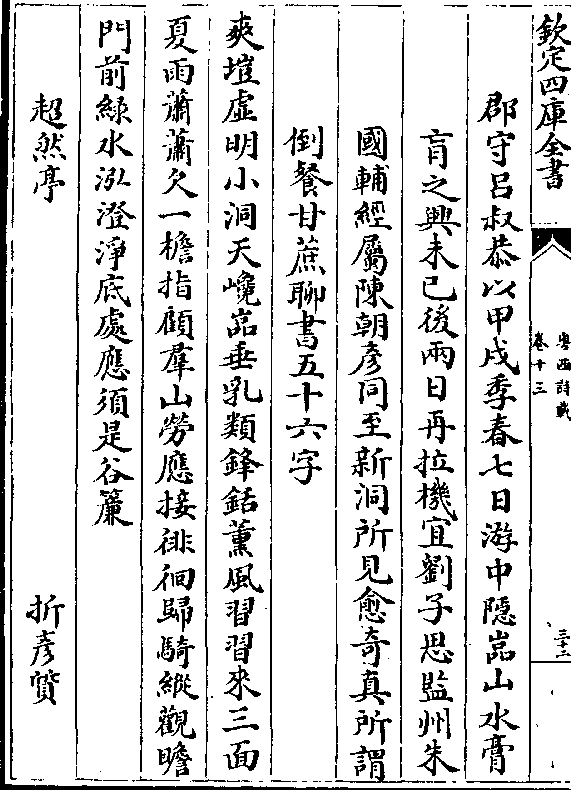 欽定四庫全書
粤西詩載
卷十三
三十二
郡守吕叔恭以甲戌季春七日游中隠嵓山水膏
肓之興未已後兩日再拉機宜劉子思監州朱
國輔經屬陳朝彦同至新洞所見愈奇真所謂
倒餐甘蔗聊書五十六字
爽塏虚明小洞天巉嵓垂乳類鋒銛薫風習習來三面
夏雨蕭蕭欠一檐指顧羣山勞應接徘徊歸騎縱觀瞻
門前緑水泓澄淨底處應須是谷簾
超然亭
折彦質